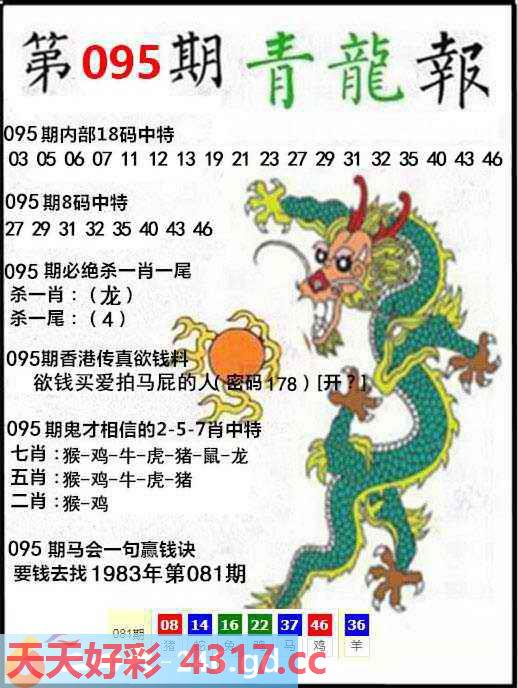 第095期青龍報
095期内部18码中特
03 05 06 07 11 12 13 19 21 23 27 29 31 32 35 40 43 46
095期8码中特
27 29 31 32 35 40 43 46
095期必绝杀一肖一尾
杀一肖：（龙）
杀一尾：（4）
095期香港传真欲钱料
欲钱买爱拍马屁的人(密码178)[开?]
095期鬼才相信的2-5-7肖中特
七肖：猴-鸡-牛-虎-猪-鼠-龙
五肖：猴-鸡-牛-虎-猪
二肖：猴-鸡
095期马会一句赢钱诀
要钱去找1983年第081期
081期 08 14 16 22 37 46 36
猪 蛇 兔 鸡 马 鸡 羊
天天好彩 4317.cc